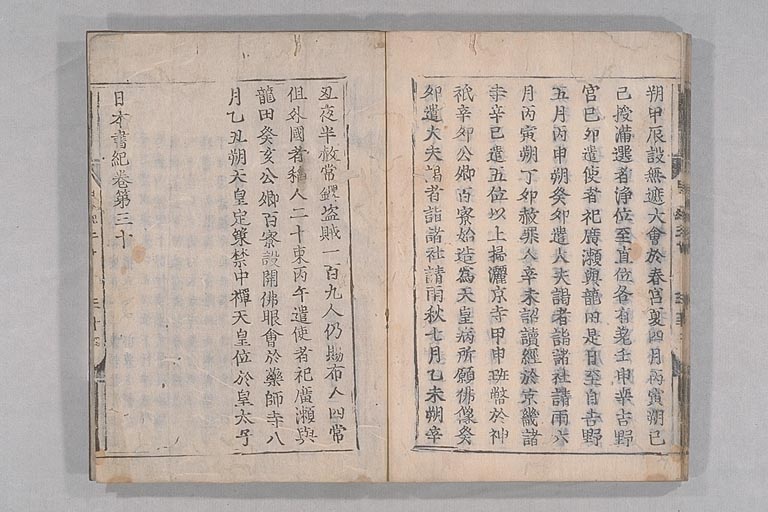 朔甲辰設無遮大會於春宮夏四月丙寅朔己
巳授滿選者淨位至直位各有差壬申幸吉野
宮己卯遣使者祀廣瀬與龍田是日至自吉野
五月丙申朔癸卯遣大夫謁者詣諸社請雨六
月丙寅朔丁卯赦罪人辛未詔讀經於京畿諸
寺辛巳遣五位以上掃灑京寺甲申班幣於神
祇辛卯公卿百寮始造爲天皇病所願佛像癸
卯遣大夫謁者詣諸社請雨秋七月乙未朔辛
丑夜半赦常䥫盗賊一百九人仍賜布人四常
但外國者稲人二十束丙午遣使者祀廣瀬與
龍田癸亥公卿百寮設開佛眼會於藥師寺八
月乙丑朔天皇定策禁中禪天皇位於皇太子
日本書紀巻第三十